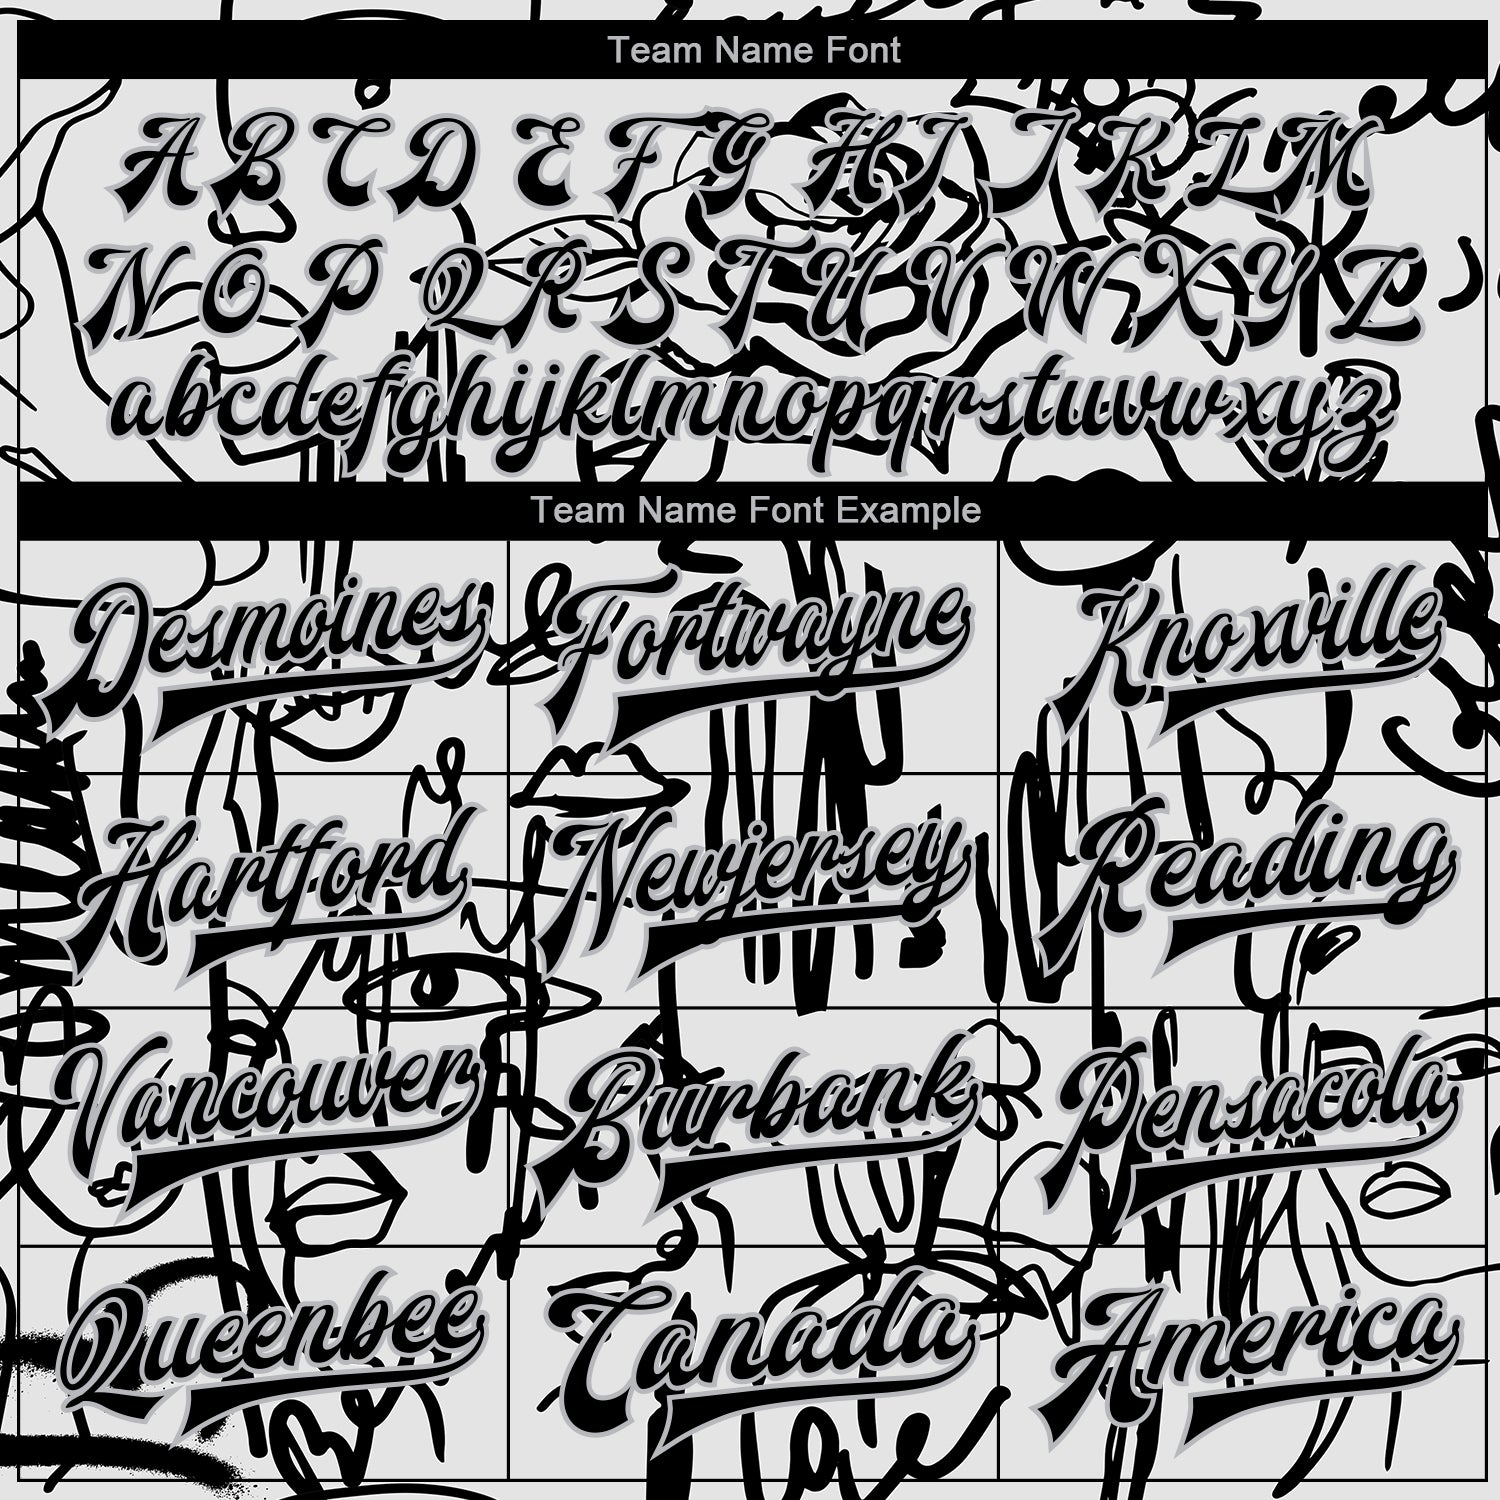 Team Name Font
A B C D E F G H I J K L M
N O P Q R S T U V W X Y Z
abcdefghijklmnopqrstuvwxyz
Team Name Font Example
Desmoines Fortwayne Knoxville
Hartford Newjersey Reading
Vancouver Burbank Pensacola
Queenbee Canada America